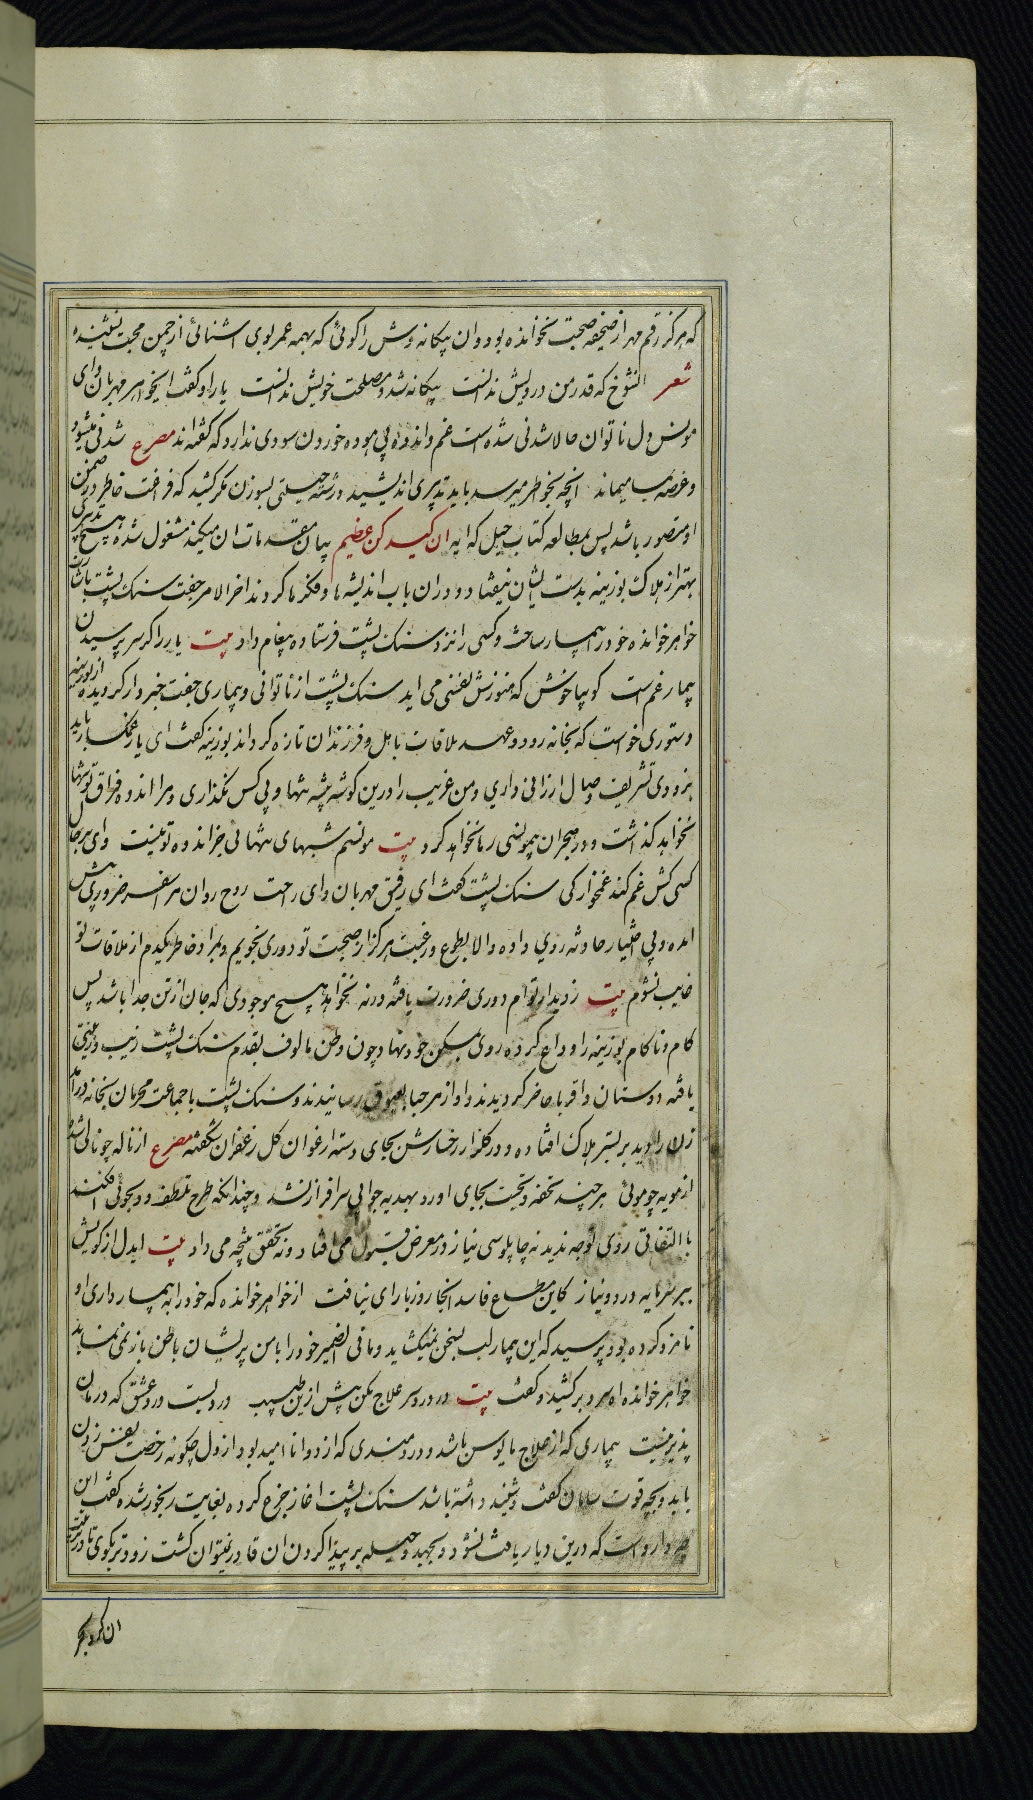 که هرگز رقم مهر از صحیفه صحبت نخوانده بود و ان بیکانه وش را کوئی که بهمه عمر بوی اشنائی از چمن محبت نشنیده
شعر النشوخ که قدر من درویش ندانست بیکانه شد و مصلحت خویش ندانست یار او کفت ایخواهر مهربان و ای
مونس دل ناتوان حالا شدنی شده است غم و اندوه بی موده خوردن سودی ندارد که کفته اند مصرع شدنی میشود
و غصه بما میماند انچه بخواطر میرسد باید تدبیری اندیشید و رشته حیلتی بسوزن مکر کشید که فراغت خاطر در ضمن
او متصور باشد پس بمطالعه کتاب حیل که ایه ان کیدکن عظیم بیان مقدمات ان میکند مشغول شده هیچ تدبیری
بهتر از هلاک بوزینه بدست ایشان نیفتاد و دران باب اندیشه ها و فکر ها کردند اخر الامر جفت سنک پشت باشارت
خواهر خوانده خود را بیمار ساخت و کسی را نزد سنک پشت فرستاده پیغام داد بیت یار را کر سر پرسیدن
بیمار غم است کو بیا خوش که هنوزش نفسی می اید سنک پشت از ناتوانی و بیماری جفت خبردار کردیده از بوزینه
دستوری خواست که بخانه رود و عهد ملاقات باهل و فرزندان تازه کرداند بوزینه کفت ای یار غمکسار باید
بزودی تشریف وصال ارزانی داری و من غریب را درین کوشه بیشه تنها و بی کس نکذاری و مرا اندوه فراق تو تنها
نخواهد کذاشت و در هجران بیمونسی رها نخواهد کرد بیت مونسم شبهای تنهائی جز اندوه تو نیست وای بر حال
کسی کش غم کند غمخوارکی سنک پشت کفت ای رفیق مهربان و ای راحت روح روان مرا سفر ضروری پیش
امده و بی اختیار حادثه روی داده والا بطوع و رغبت هرکز از صحبت تو دوری نجویم و بمراد خاطر یکدم از ملاقات تو
غایب نشوم بیت ز دیدار توام دوری ضرورت یافته ورنه نخواهد هیچ موجودی که جان از تن جدا باشد پس
کام و ناکام بوزینه را وداع کرده روی بمسکن خود نهاد چون وطن مالوف بقدم سنک پشت زیب و زینتی
یافته دوستان و اقربا حاضر کردیدند و اواز مرحبا بعیوق رسانیدند و سنک پشت با جماعت محرمان بخانه درامد
زن را دید بر بستر هلاک افتاده و در کلزار رخسارش بجای دسته ارغوان کل زعفران شکفته مصرع از ناله چو نالی شده
از مویه چو موئی هر چند تحفه و تحیت بجای اورد بهدیه جوابی سرافراز نشد و چندانکه طرح تلطف و دلجوئی افکند
با التفاتی روی توجه ندید نه چاپلوسی نیاز در معرض قبول می افتاد و نه تحقق نتیجه می داد بیت ایدل از کویش
ببر سرمایه درد و نیاز کاین مطاع فاسد انجا روز بازاری نیافت از خواهر خوانده که خود را به بیمار داری او
نامزد کرده بود پرسید که این بیمار لب بسخن نمیکشاید و مافی الضمیر خود را با من پریشان باطن باز نمی نماید
خواهر خوانده اه سرد برکشید و کفت بیت دردسر علاج مکن پیش ازین طبیب دردیست درد عشق که درمان
پذیر نیست بیماری که از علاج مایوس باشد و دردمندی که از دوا نا امید بود از دل چکونه رخصت نفس زدن
یابد و بچه قوت سامان کفت و شنید داشته باشد سنک پشت اغاز جزع کرده بغایت رنجور شده کفت این
چه دارو است که درین دیار یافت نشود و بجهد و حیله بر پیدا کردن ان قادر نمیتوان کشت زودتر بکوی تا در
ان کرد بحر